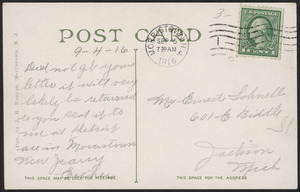 POST CARD
9-4-16.
Did not get your
letter it will very
likely be returned
to you sent it to
me at Detroit
am in Morristown
New Jersey
THIS SPACE MAY BE USED FOR MESSAGE
MORRISTOWN
SEP
7 30 AM
1916
U.S. POSTAGE
1 CENT 1
Mr Ernest Schnelle
601 E Biddle
St
Jackson
Mich
THIS SPACE FOR THE ADDRESS